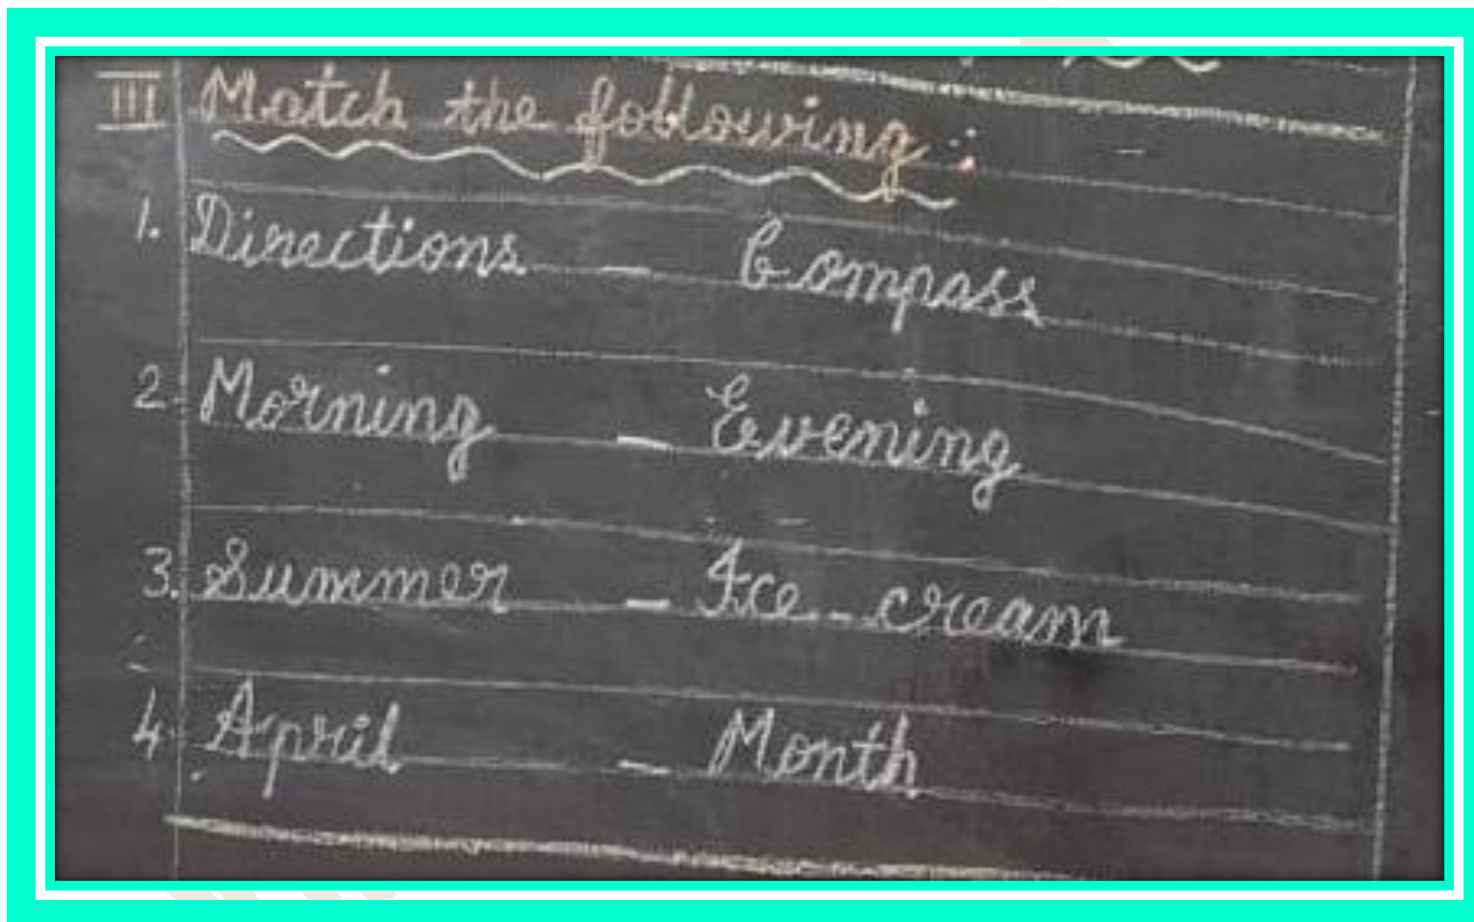 III Match the following :
1. Directions - Compass
2. Morning - Evening
3. Summer - Ice-cream
4. April - Month